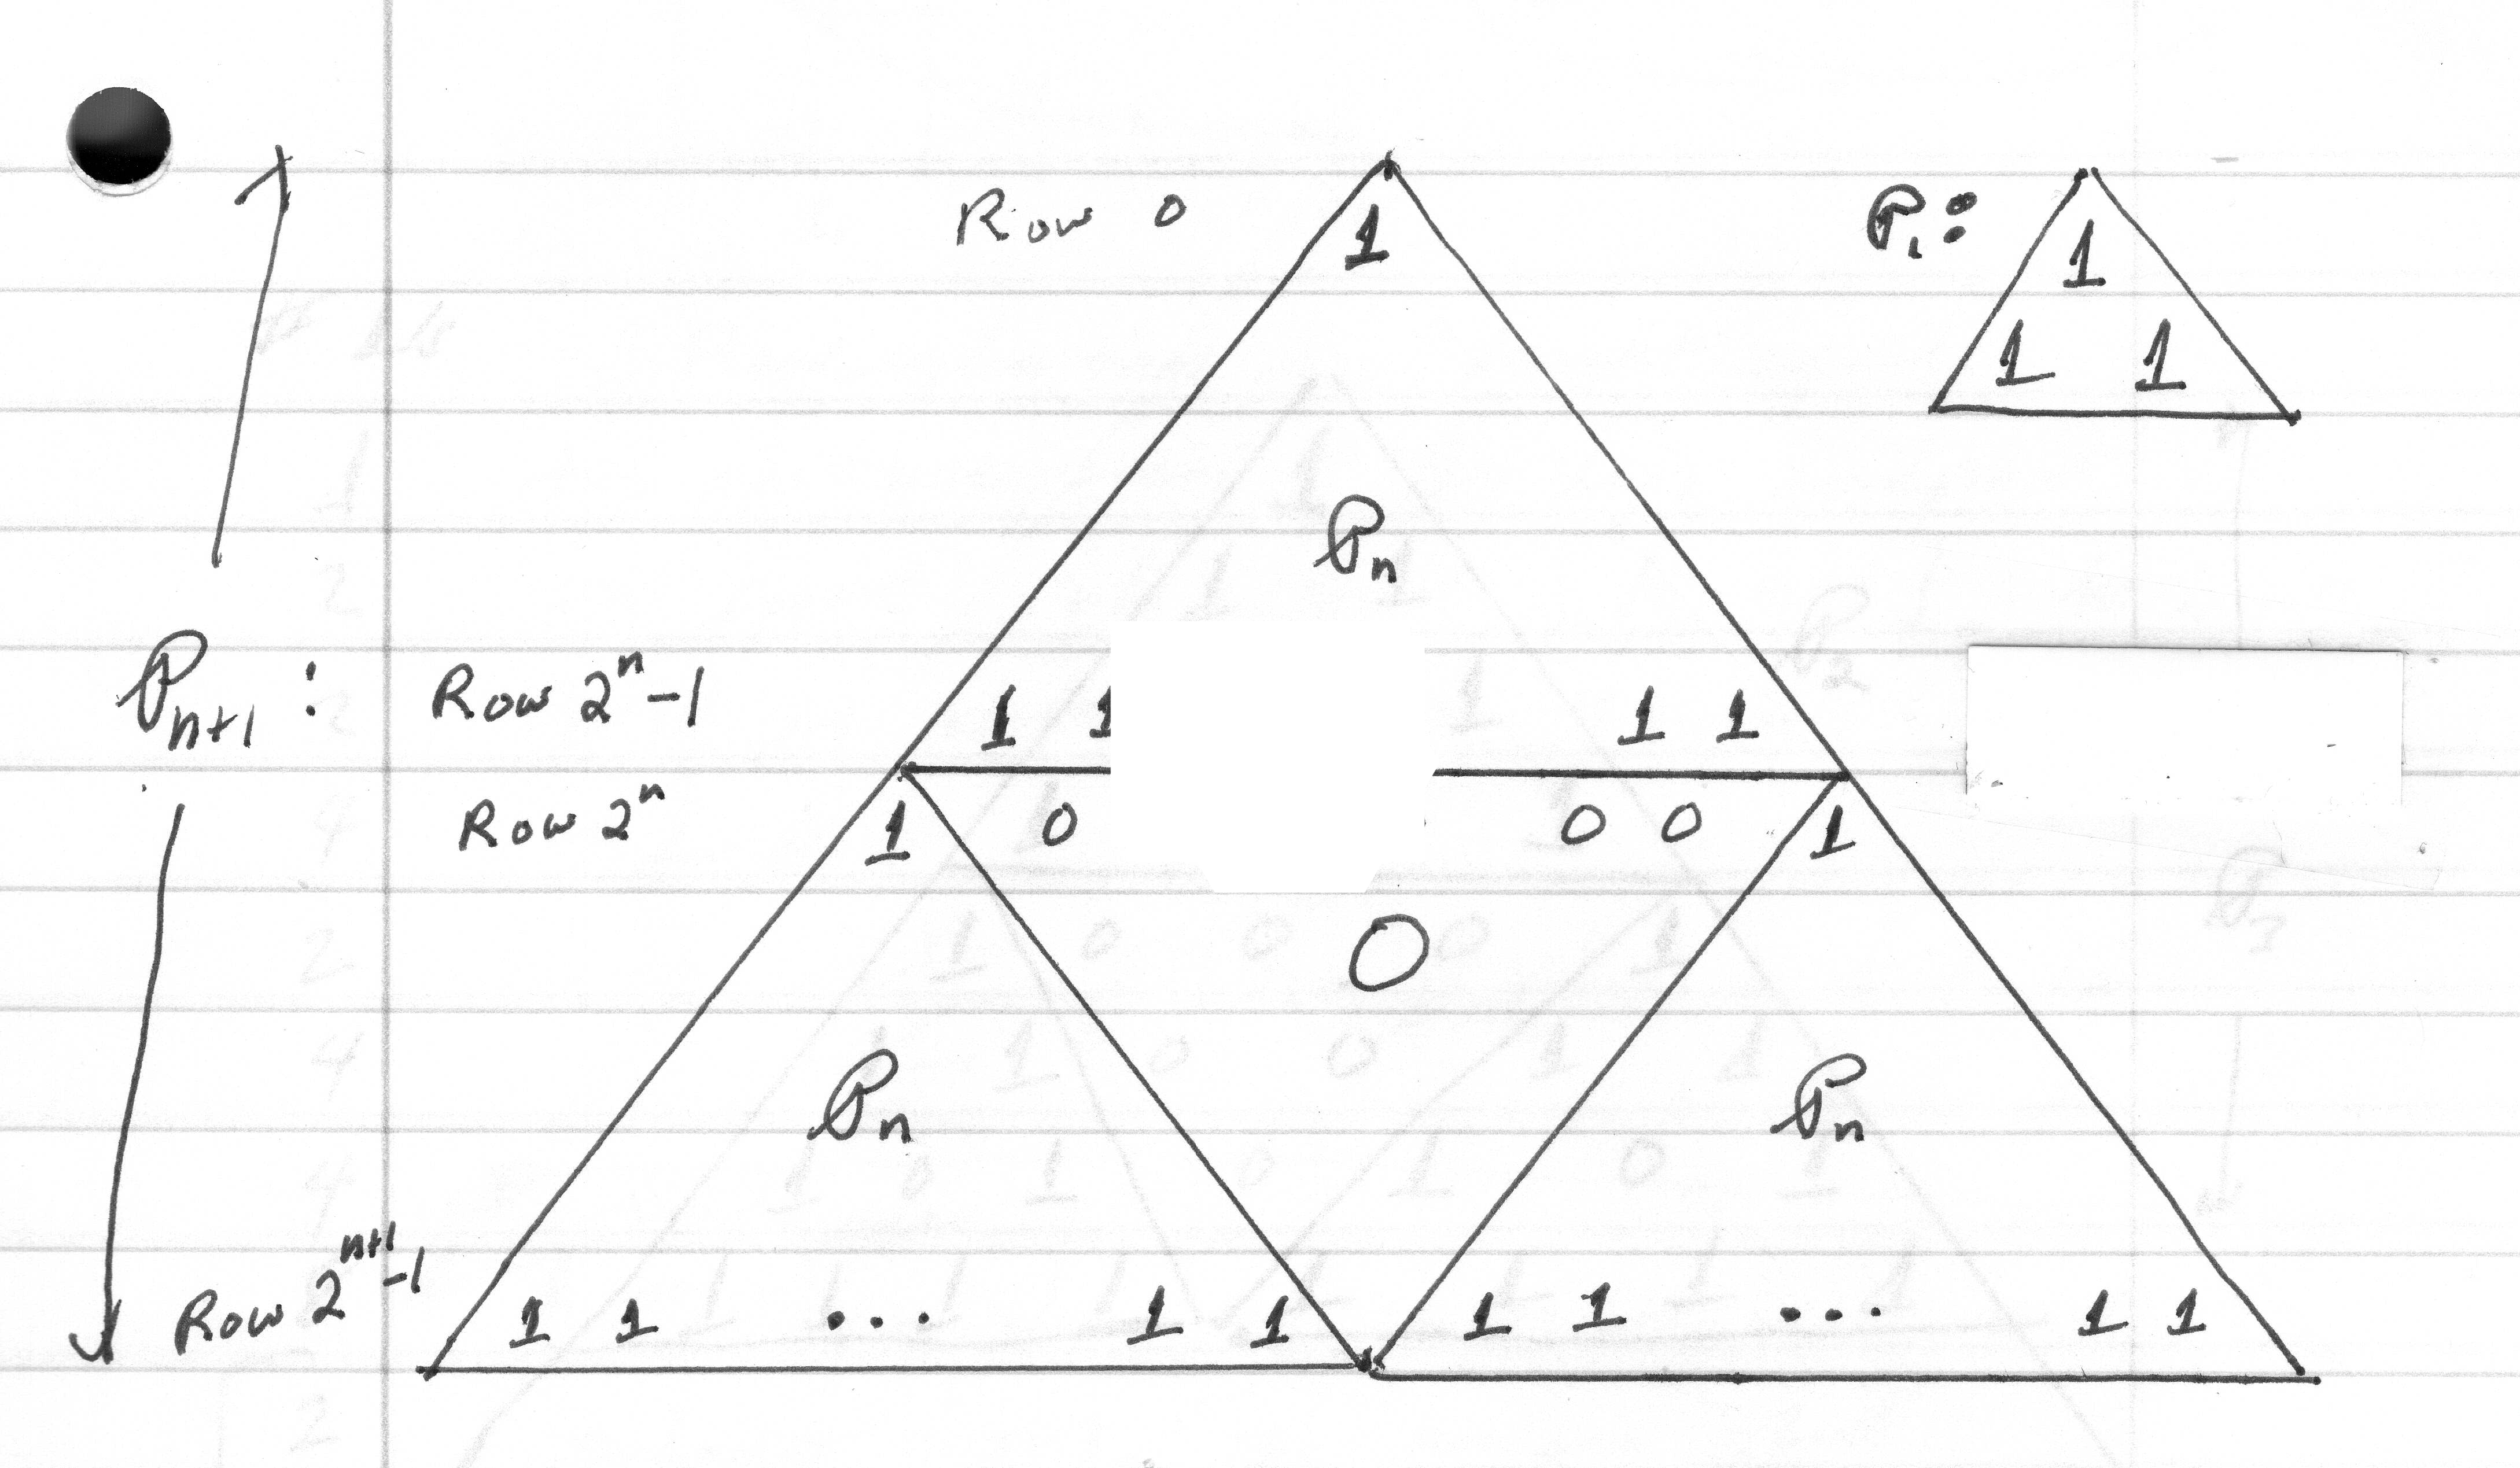 Row 0
1
P₁:
1
1 1
Pn
Pn+1 : Row 2ⁿ-1
1 1
1 1
Row 2ⁿ
1 0
0 0 1
0
Pn
Pn
Row 2ⁿ⁺¹-1
1 1 ... 1 1
1 1 ... 1 1